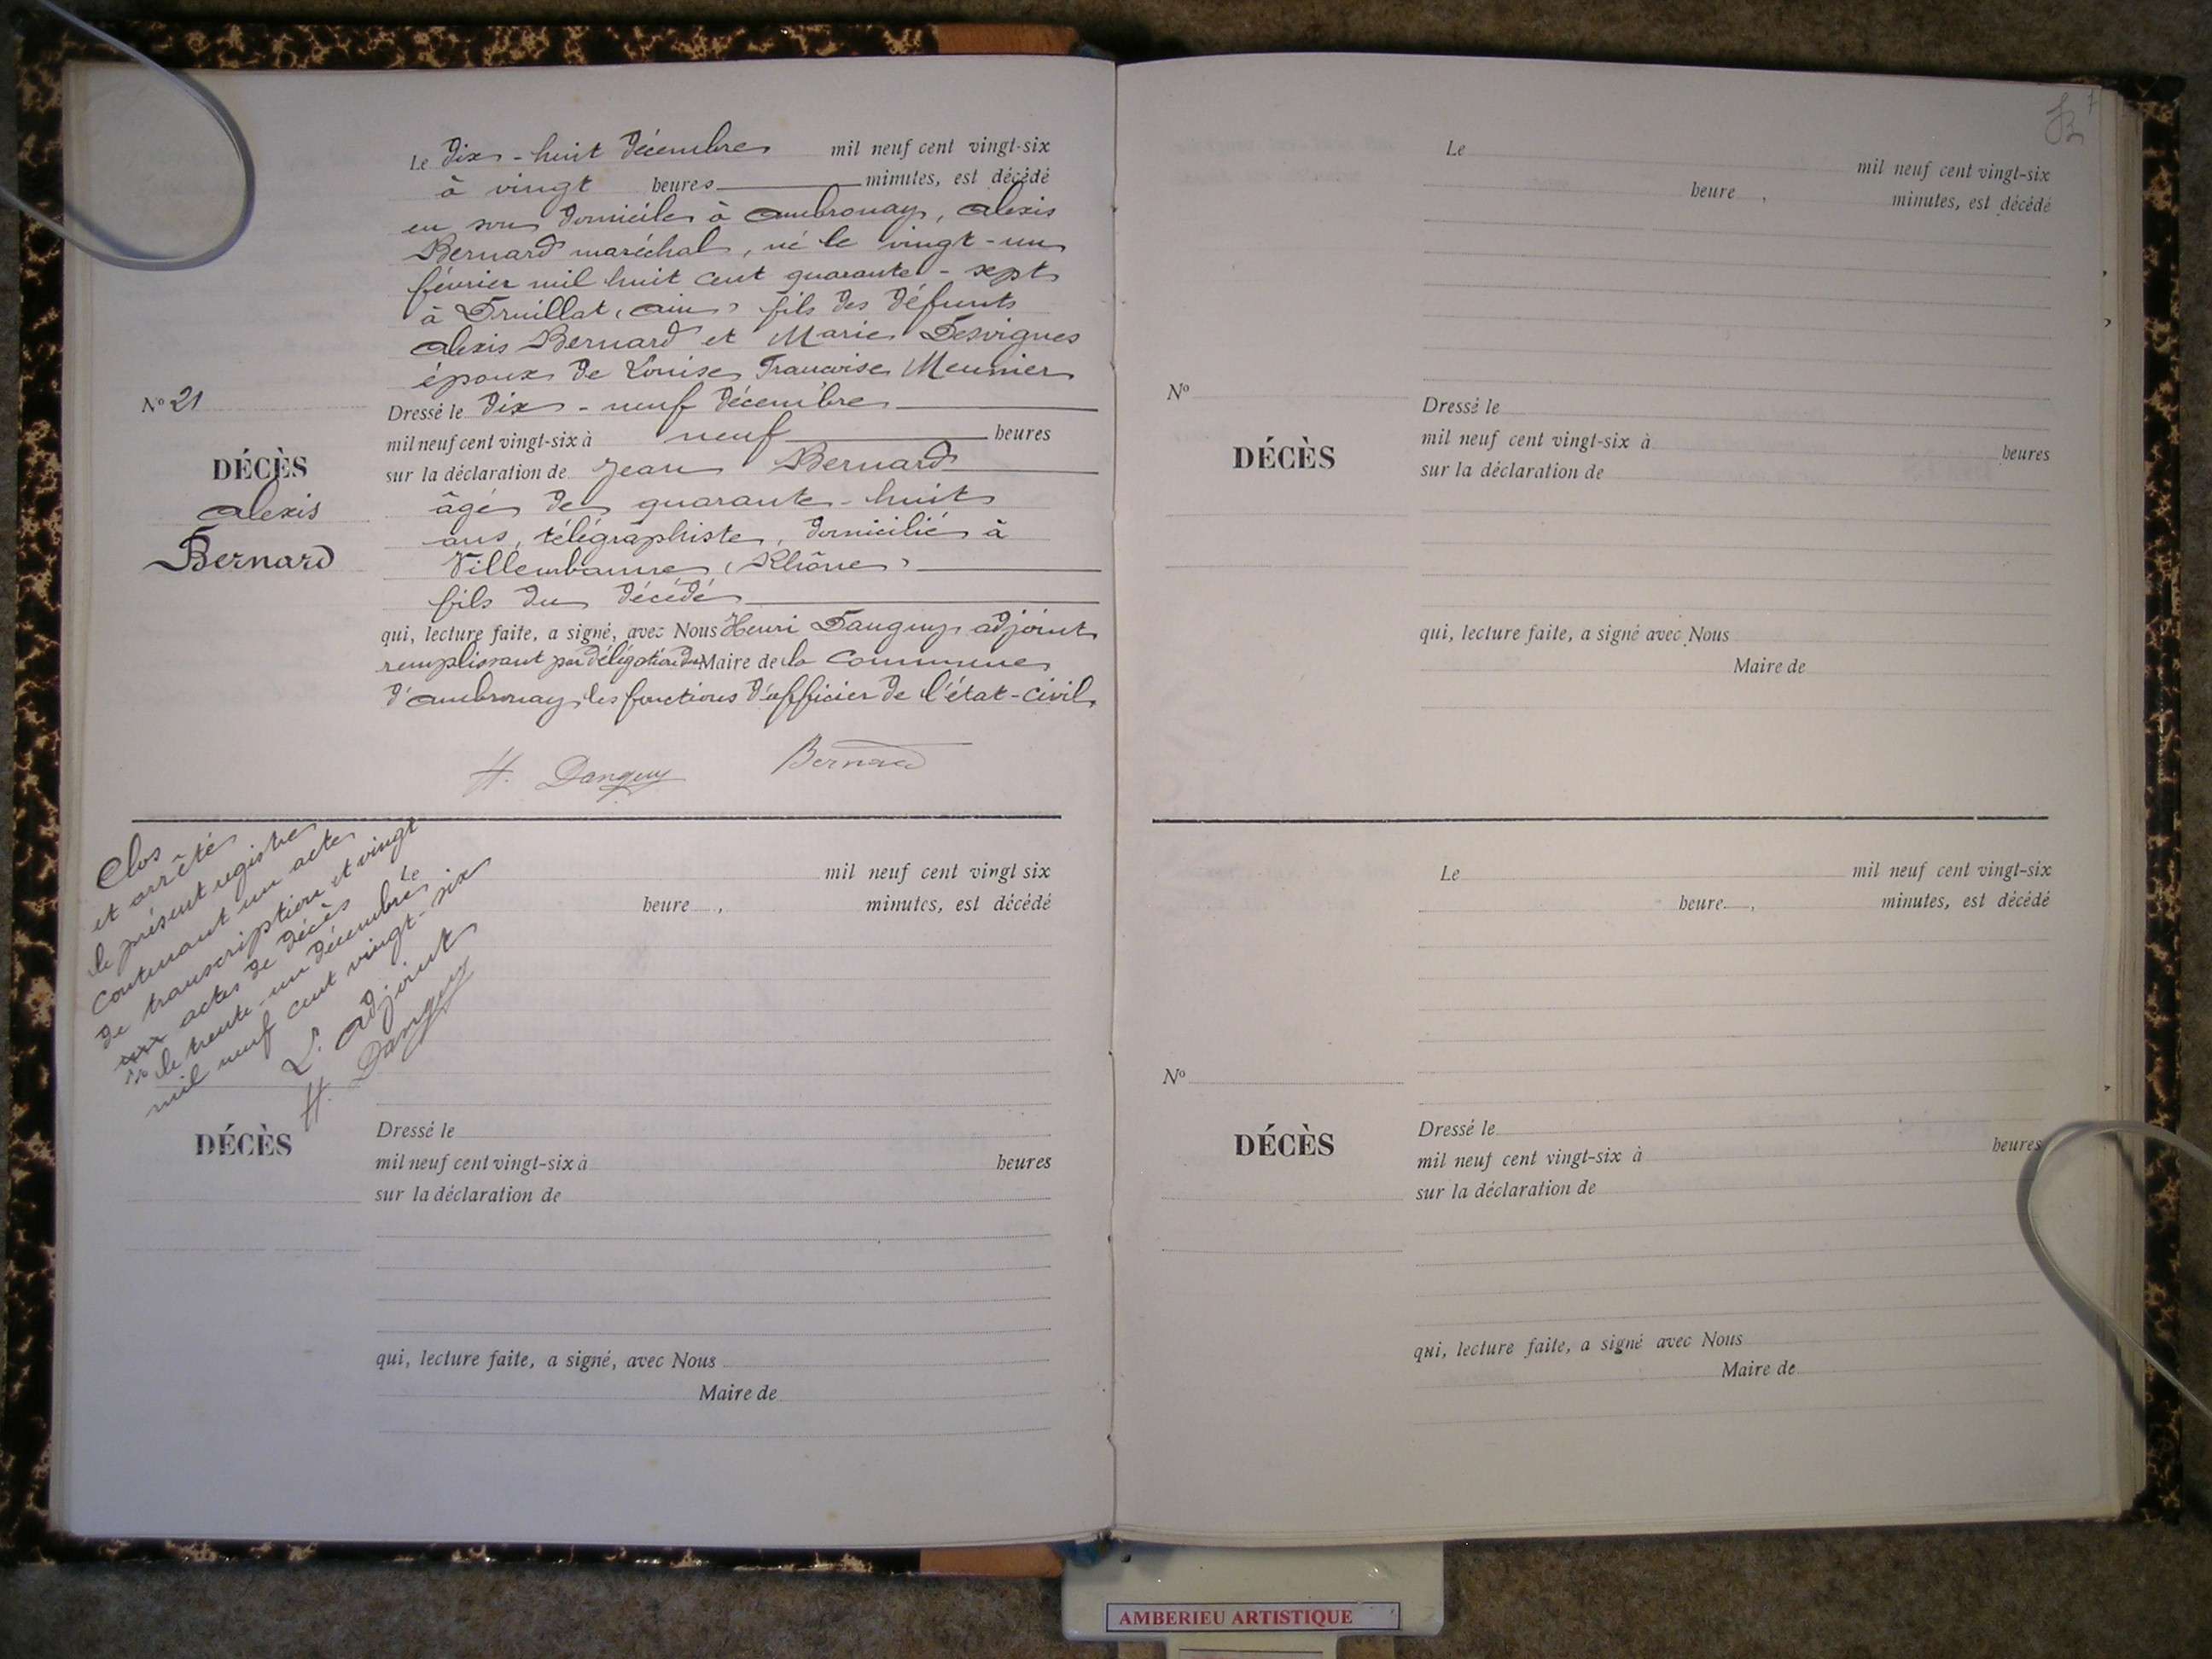 Le dix-huit décembre mil neuf cent vingt-six
à vingt heures minutes, est décédé
en son domicile à Ambronay, Alexis
Bernard maréchal, né le vingt-un
février mil huit cent quarante-sept
à Druillat (Ain) fils des défunts
Alexis Bernard et Marie Desvignes
époux de Louise Françoise Meunier
Dressé le dix-neuf décembre
mil neuf cent vingt-six à neuf heures
sur la déclaration de Jean Bernard
âgé de quarante-huit
ans, télégraphiste, domicilié à
Villeurbanne (Rhône)
fils du décédé
qui, lecture faite, a signé, avec Nous Henri Danguy adjoint
remplissant par délégation du Maire de la commune
d'Ambronay, les fonctions d'officier de l'état-civil.
H. Danguy Bernard
No 21
DÉCÈS
Alexis
Bernard
Clos
et arrêté
le présent registre
contenant un acte
de transcription et vingt
actes de décès
le trente-un décembre
mil neuf cent vingt-six
L'adjoint
H. Danguy
Le mil neuf cent vingt six
heure , minutes, est décédé
DÉCÈS
Dressé le
mil neuf cent vingt-six à heures
sur la déclaration de
qui, lecture faite, a signé, avec Nous
Maire de
7
Le mil neuf cent vingt-six
heure , minutes, est décédé
No
DÉCÈS
Dressé le
mil neuf cent vingt-six à heures
sur la déclaration de
qui, lecture faite, a signé avec Nous
Maire de
Le mil neuf cent vingt-six
heure , minutes, est décédé
No
DÉCÈS
Dressé le
mil neuf cent vingt-six à heures
sur la déclaration de
qui, lecture faite, a signé avec Nous
Maire de
AMBERIEU ARTISTIQUE